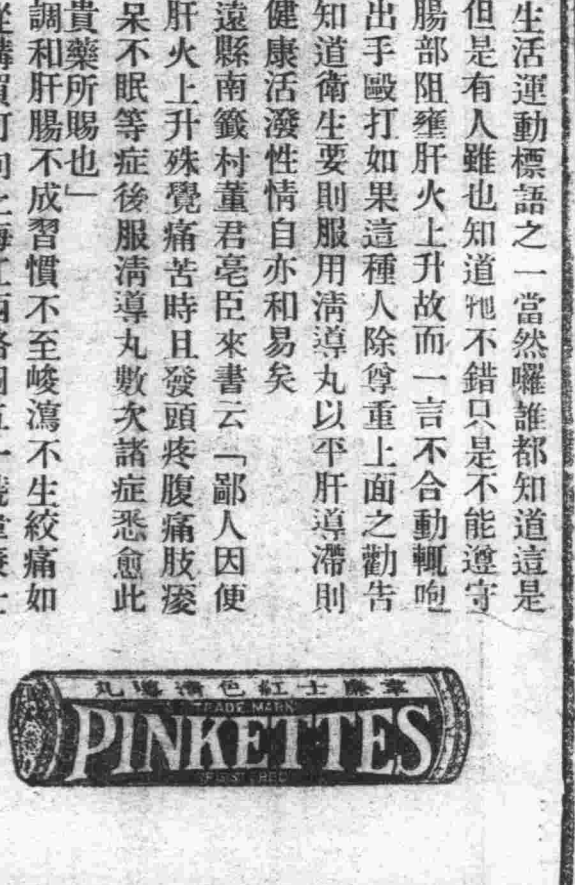 生活運動標語之一當然囉誰都知道這是
但是有人雖也知道牠不錯只是不能遵守
腸部阻壅肝火上升故而一言不合動輒咆
出手毆打如果這種人除尊重上面之勸告
知道衛生要則服用清導丸以平肝導滯則
健康活潑性情自亦和易矣
遠縣南籤村董君亳臣來書云「鄙人因便
肝火上升殊覺痛苦時且發頭疼腹痛肢痠
呆不眠等症後服清導丸數次諸症悉愈此
貴藥所賜也」
調和肝腸不成習慣不至峻瀉不生絞痛如
韋廉士紅色清導丸
TRADE MARK
PINKETTES
REGISTERED